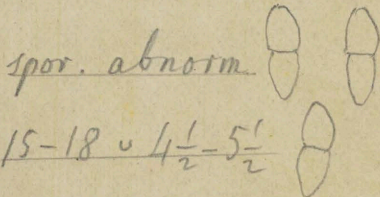 spor. abnorm.
15-18 ᴗ 4½-5½